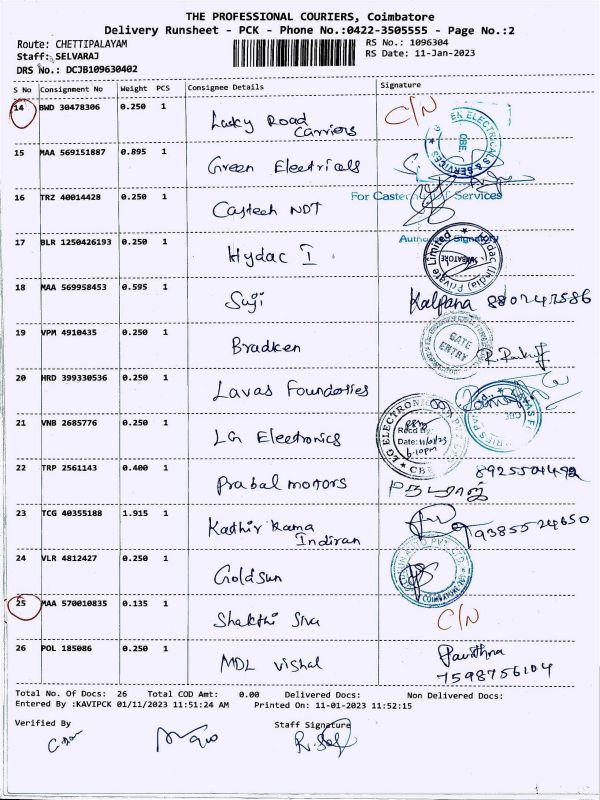 THE PROFESSIONAL COURIERS, Coimbatore
Delivery Runsheet - PCK - Phone No.:0422-3505555 - Page No.:2
Route: CHETTIPALAYAM RS No.: 1096304
Staff: SELVARAJ RS Date: 11-Jan-2023
DRS No.: DCJB109630402
S No Consignment No Weight PCS Consignee Details Signature
14 BWD 30478306 0.250 1 Lucky Road Carriers C/N
15 MAA 569151887 0.895 1 Green Electricals
EN ELECTRICALS & SERVICES CBE
16 TRZ 40014428 0.250 1 Castech NDT
For Castech Services
Authorised Signatory
17 BLR 1250426193 0.250 1 Hydac I
Hydac (India) Private Limited
18 MAA 569958453 0.595 1 Suji Kalpana 880747586
19 VPM 4910435 0.250 1 Bradken
GATE ENTRY
20 HRD 399330536 0.250 1 Lavas Foundories
21 VNB 2685776 0.250 1 LG Electronics
LG ELECTRONIC
Recd By
Date: 11/01/23
6.10pm
CBE
22 TRP 2561143 0.400 1 Prabal motors
23 TCG 40355188 1.915 1 Kathir Kama Indiran 9385524650
24 VLR 4812427 0.250 1 Goldsun
25 MAA 570010835 0.135 1 Shakthi Siva C/N
26 POL 185086 0.250 1 MDL Vishal Pavithra 7598756104
Total No. Of Docs: 26 Total COD Amt: 0.00 Delivered Docs: Non Delivered Docs:
Entered By :KAVIPCK 01/11/2023 11:51:24 AM Printed On: 11-01-2023 11:52:15
Verified By Staff Signature